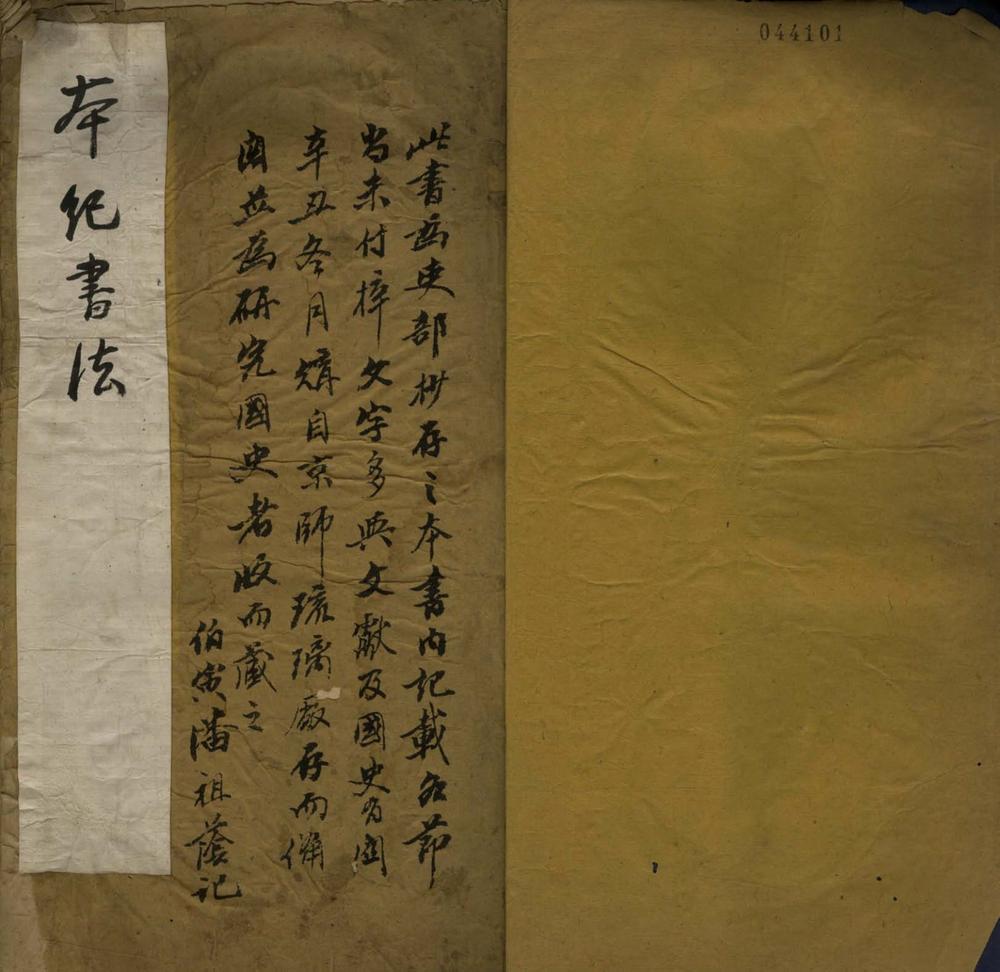 044101
此書為吏部抄存之本書內記載各節
尚未付梓文字多典文獻及國史有關
辛丑冬月購自京師琉璃廠存而備
閱並為研究國史者收而藏之
伯寅潘祖蔭記
本紀書法